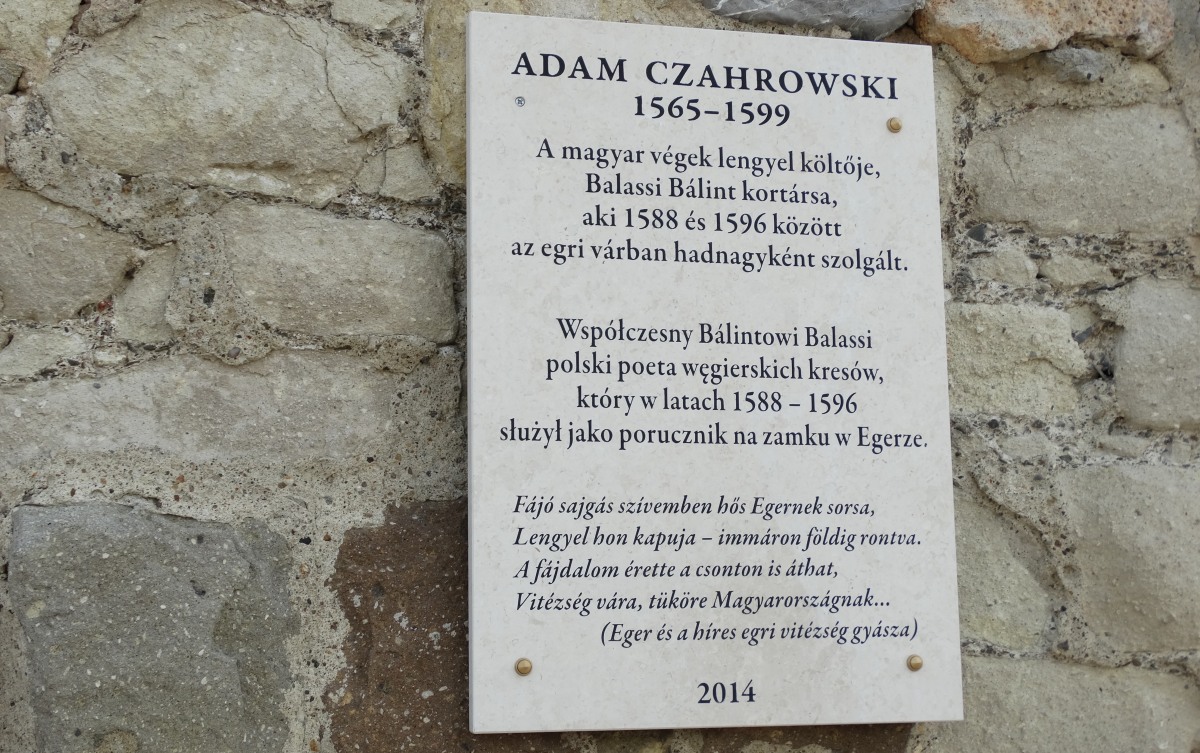 ADAM CZAHROWSKI
1565–1599
A magyar végek lengyel költője,
Balassi Bálint kortársa,
aki 1588 és 1596 között
az egri várban hadnagyként szolgált.
Współczesny Bálintowi Balassi
polski poeta węgierskich kresów,
który w latach 1588 – 1596
służył jako porucznik na zamku w Egerze.
Fájó sajgás szívemben hős Egernek sorsa,
Lengyel hon kapuja – immáron földig rontva.
A fájdalom érette a csonton is áthat,
Vitézség vára, tüköre Magyarországnak...
(Eger és a híres egri vitézség gyásza)
2014